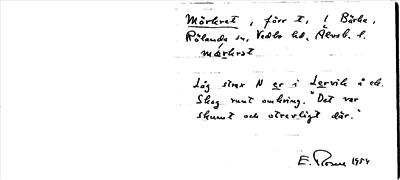 Mörkret, förr t, 1 Bärke,
Rölanda sn, Vedbo hd, Älvsb. l.
mörkret
Låg strax N er i Lervik å ek.
Skog runt omkring. "Det var
skumt och otrevligt där."
E. Rosen 1954